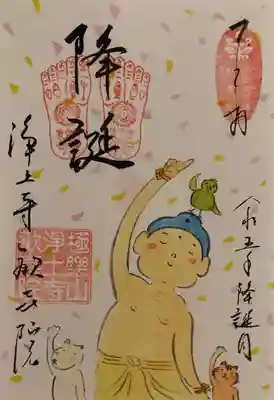 降誕
令五年降誕月
浄土寺
歓喜院
極樂山
浄土寺